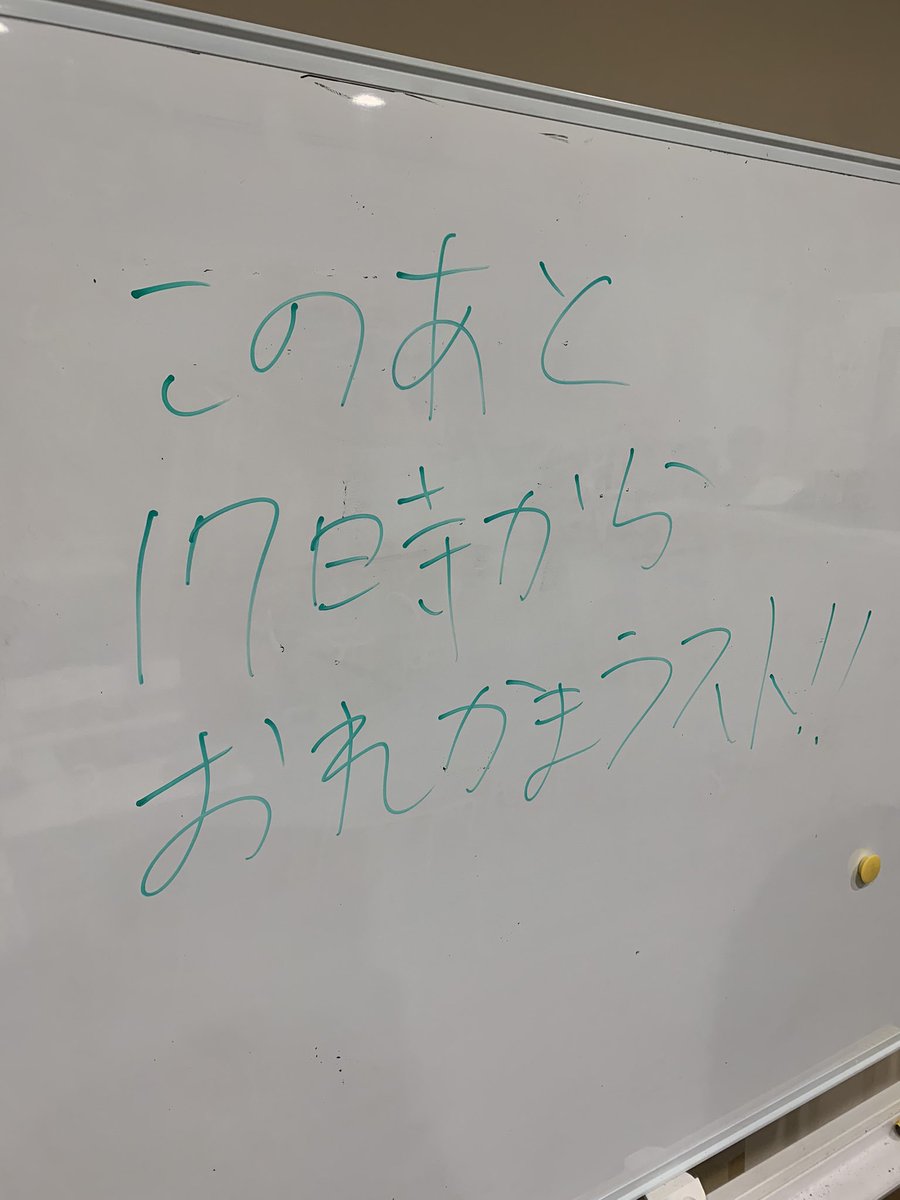 このあと
17時から
おれかまラスト!!